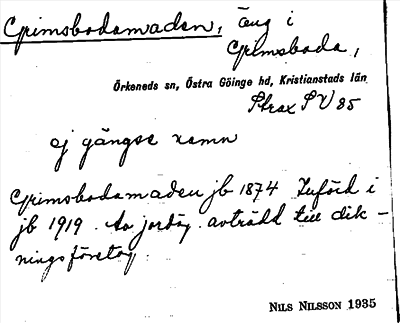 Grimsbodamaden, äng i
Grimsboda,
Örkeneds sn, Östra Göinge hd, Kristianstads län
Strax S V 85
ej gängse namn
Grimsbodamaden jb 1874 Införd i
jb 1919. Av jordäg. avträdd till dik-
ningsföretag.
NILS NILSSON 1935